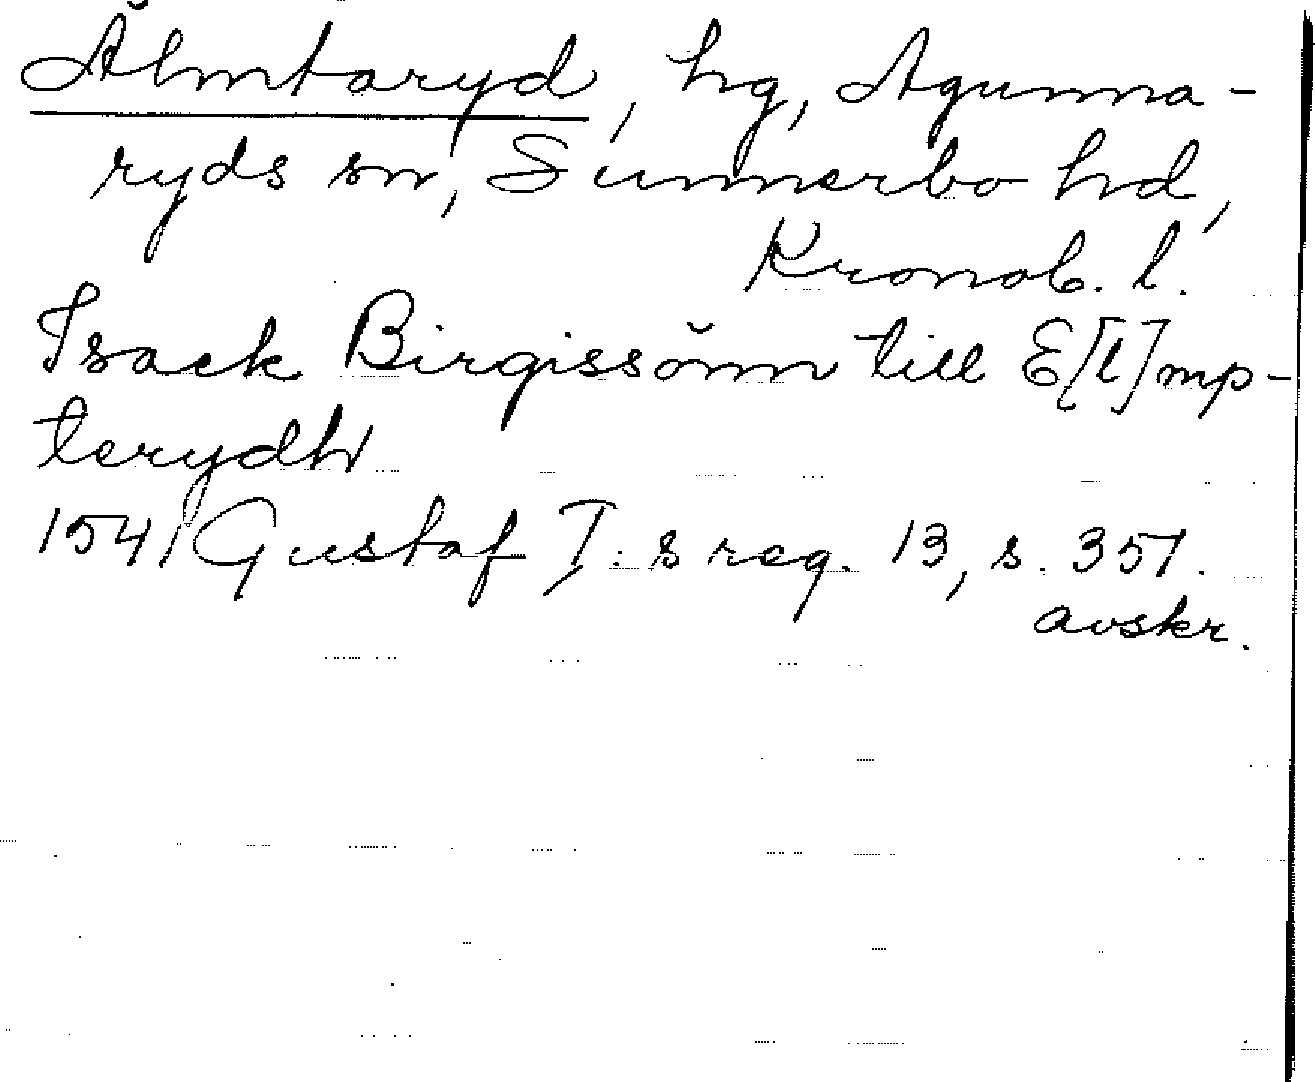 Älmtaryd, hg, Agunna-
ryds sn, Sunnerbo hd,
Kronob. l.
Isack Birgissönn till E[l]mp-
terydh
1541 Gustaf I:s reg. 13, s. 357.
avskr.